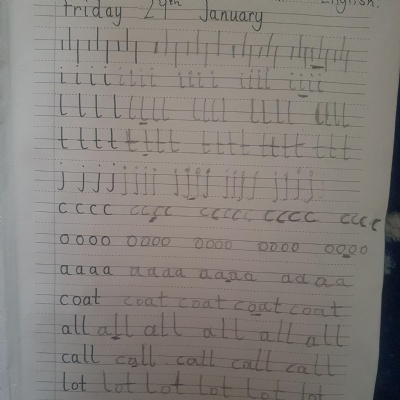 English.
Friday 24th January
i i i i i i i i i i i i i i i i i i i i
l l l l l l l l l l l l l l l l l l l l
t t t t t t t t t t t t t t t t t t t t
j j j j j j j j j j j j j j j j j j j j
c c c c c c c c c c c c c c c c c c c c
o o o o o o o o o o o o o o o o o o o o
a a a a a a a a a a a a a a a a
coat coat coat coat coat
all all all all all all
call call call call call
lot lot lot lot lot lot